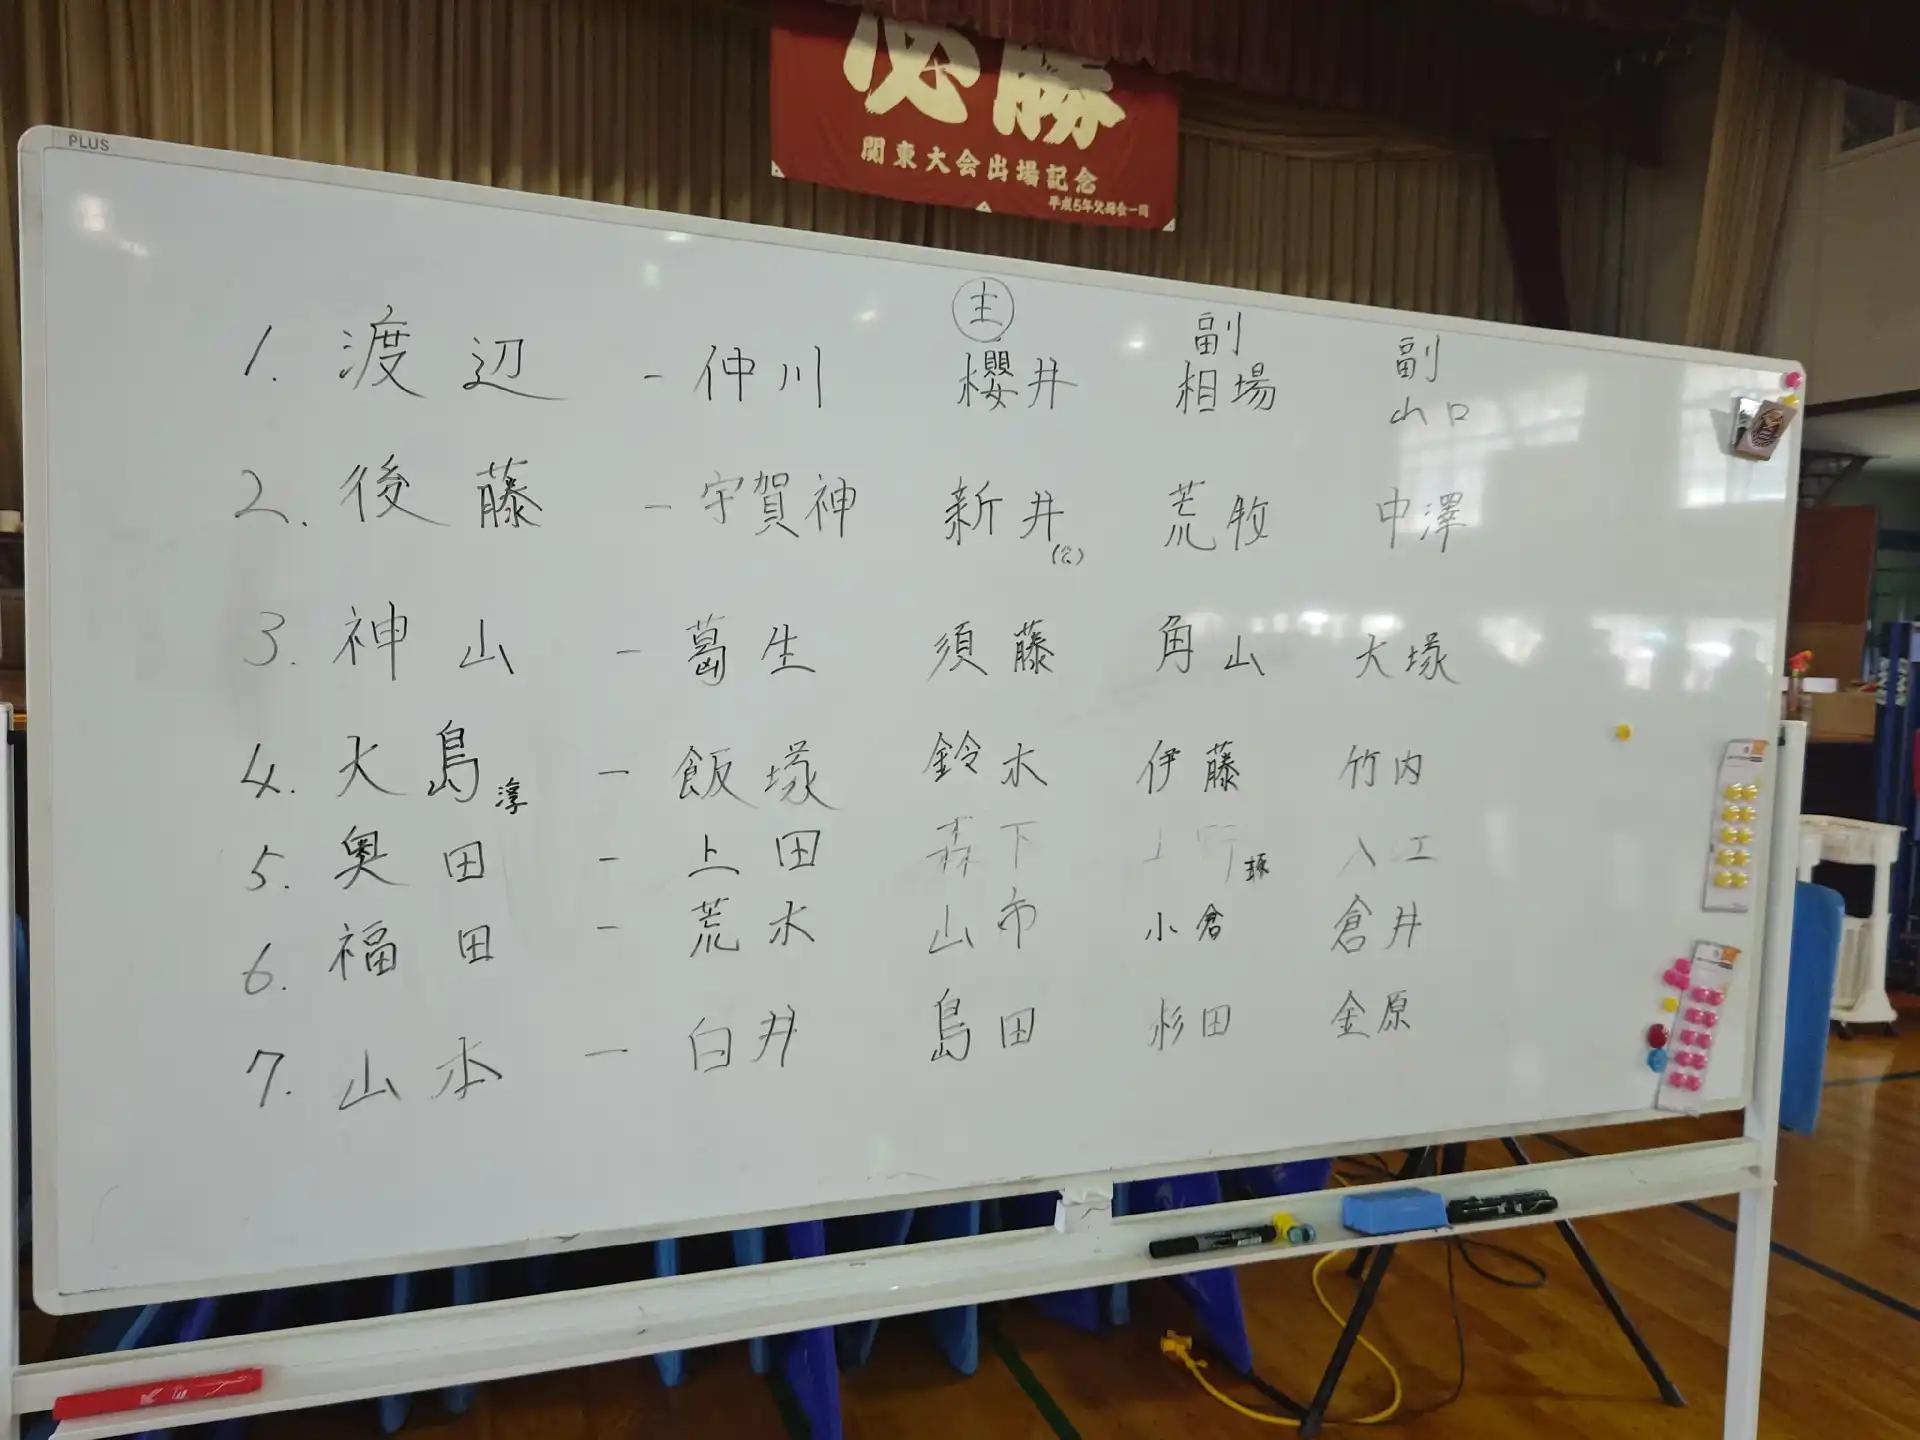 必勝
関東大会出場記念
平成5年父母会一同
PLUS
主 副 副
1. 渡辺 - 仲川 櫻井 相場 山口
2. 後藤 - 宇賀神 新井 荒牧 中澤
3. 神山 - 葛生 須藤 角山 大塚
4. 大島淳 - 飯塚 鈴木 伊藤 竹内
5. 奥田 - 上田 森下 上野 入江
6. 福田 - 荒木 山市 小倉 倉井
7. 山本 - 白井 島田 杉田 金原